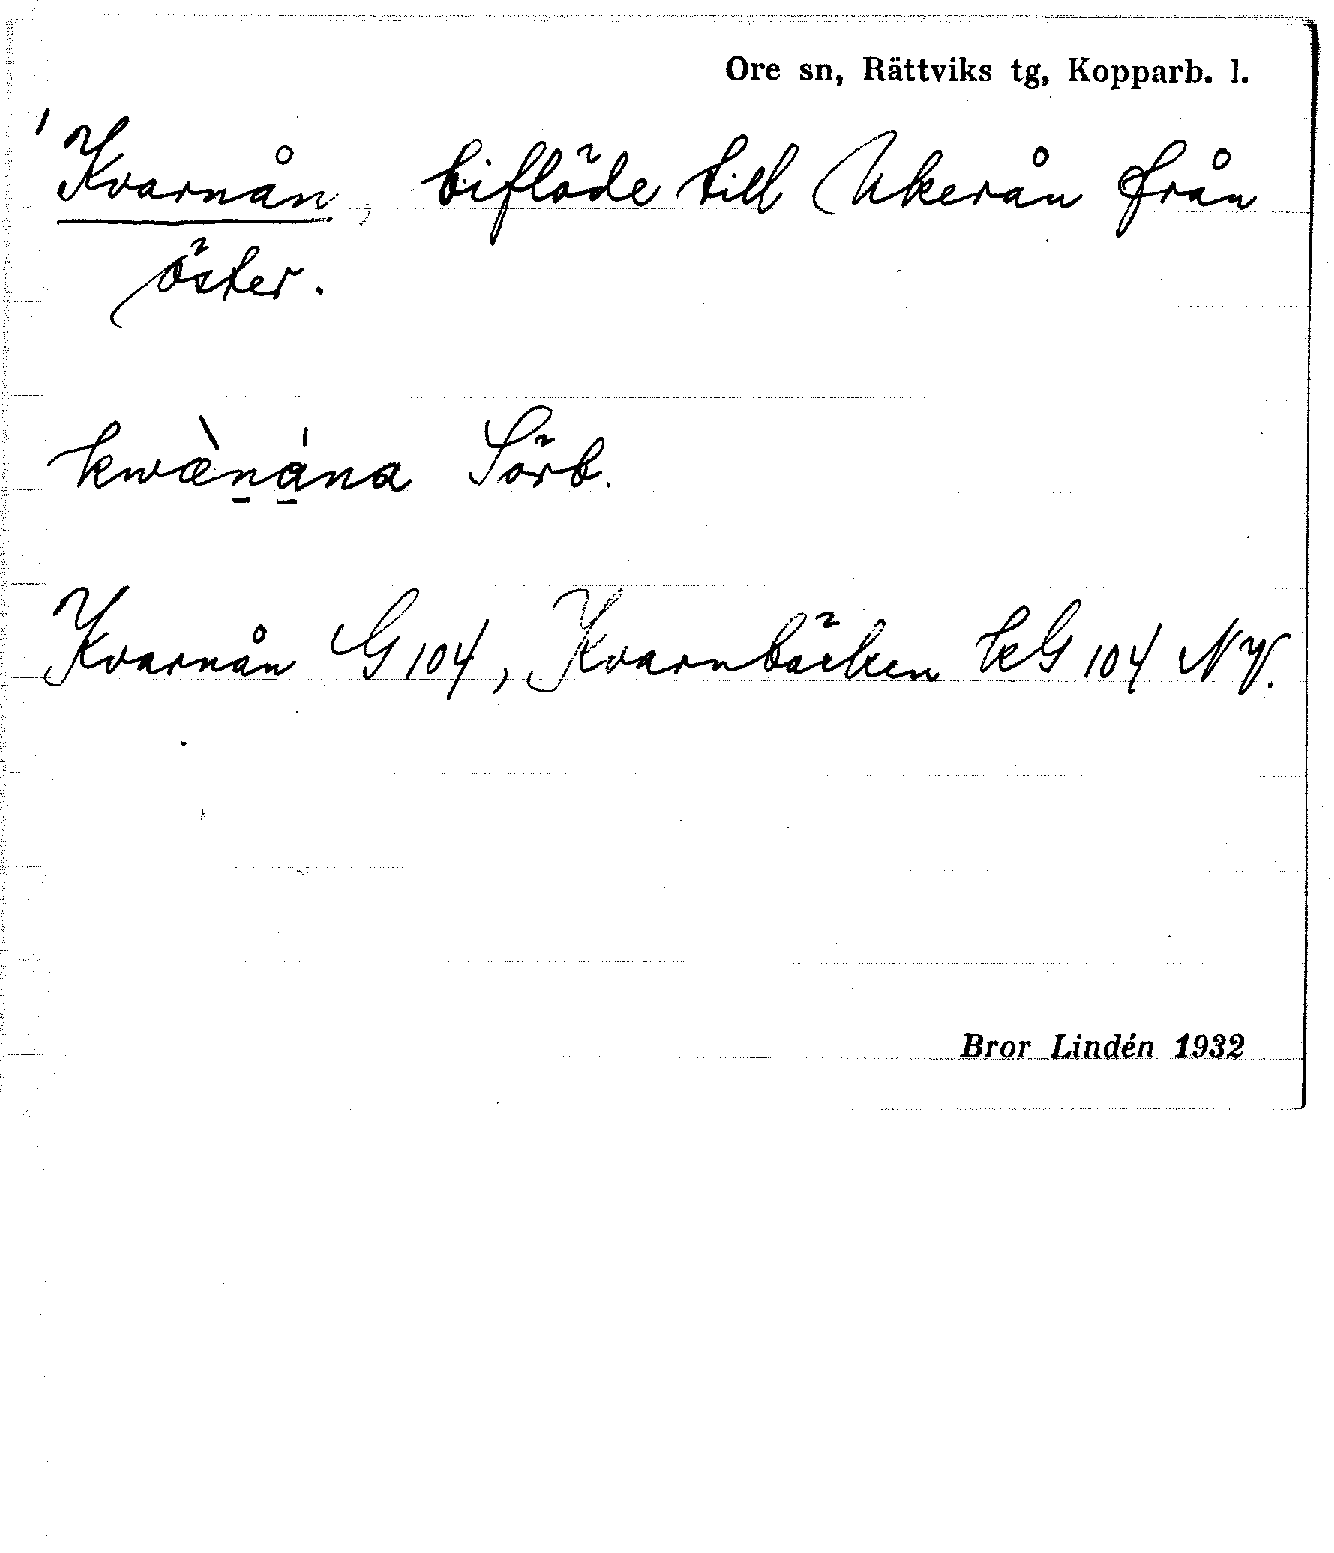 Ore sn, Rättviks tg, Kopparb. l.
Kvarnån, biflöde till Ukerån från
öster.
kwæ̀ṉá̱na Sörb.
Kvarnån G 104, Kvarnbäcken kG 104 NV.
Bror Lindén 1932